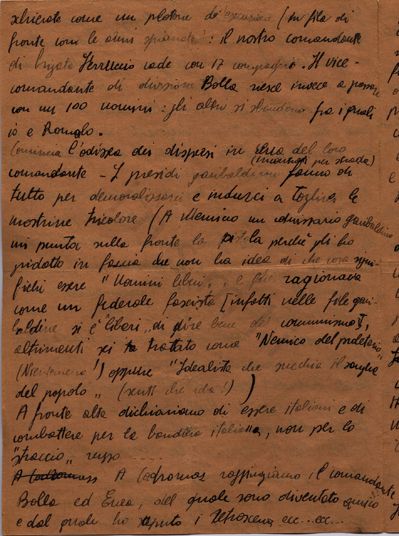 schierate come un plotone di esecuzione (in fila di
fronte con le armi spianate: il nostro comandante
di brigata Ferruccio cade con 17 compagni. Il vice-
comandante di divisione Bolla riesce invece a passare
con un 100 uomini: gli altri si sbandano fra i quali
io e Romolo.
Comincia l'odissea dei dispersi in cerca del loro
(invenzioni per strada)
comandante - I presidi garibaldini fanno di
tutto per demoralizzarci e indurci a togliere le
mostrine tricolore (A Memino un commissario garibaldino
mi punta sulla fronte la pistola perché gli ho
gridato in faccia che non ha idea di che cosa signi-
fichi essere "Uomini liberi" e che ragionava
come un federale fascista [infatti nelle file gari-
baldine si è "liberi" di dire bene del comunismo],
altrimenti sei trattato come "Nemico del proletario"
oppure "Idealista che succhia il sangue
del popolo" (senti che idea!))
A fronte alta dichiariamo di essere italiani e di
combattere per la bandiera italiana, non per lo
"straccio" russo
A Codromaz raggiungiamo il comandante
Bolla ed Enea, del quale sono diventato amico
e dal quale ho saputo i retroscena ecc... ecc...